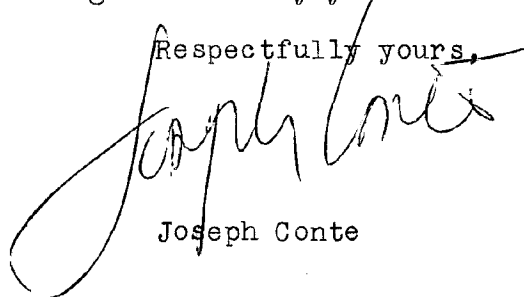 Respectfully yours,
Joseph Conte
Joseph Conte